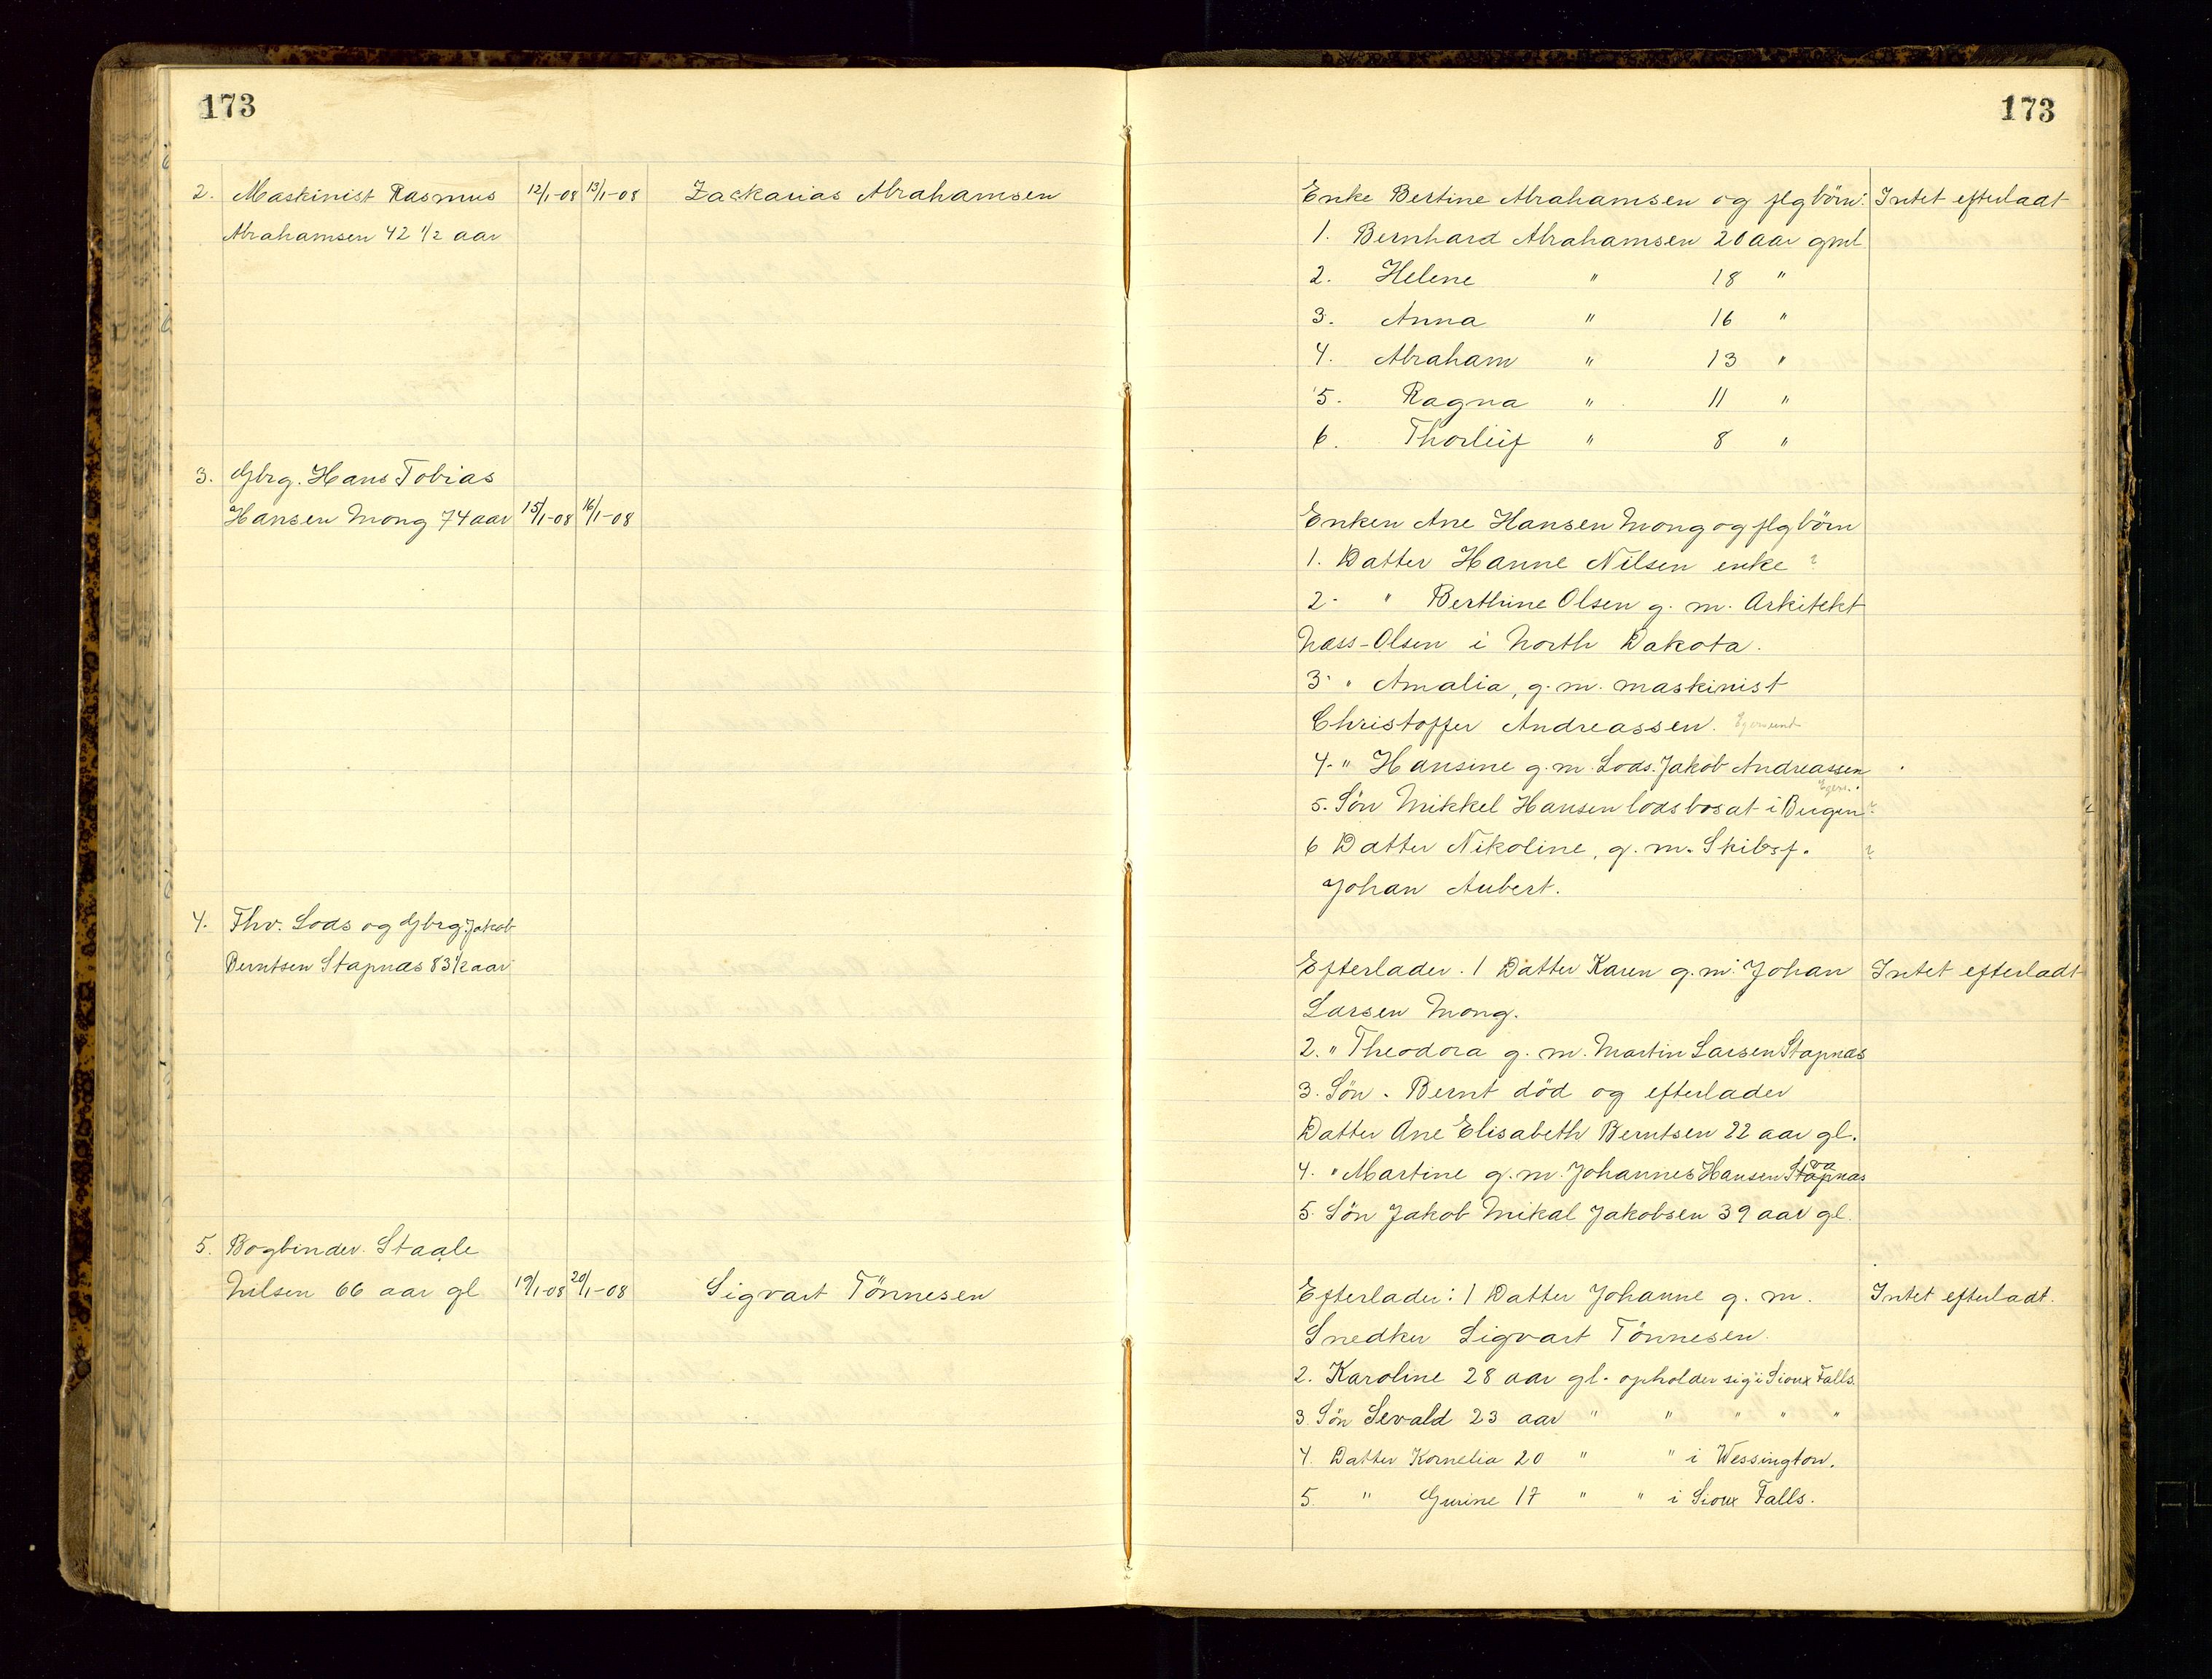 173
173
2. Maskinist Rasmus 12/1-08 13/1-08 Zackarias Abrahamsen
Abrahamsen 42 1/2 aar
Enke Bertine Abrahamsen og flg börn: Intet efterladt
1. Bernhard Abrahamsen 20 aar gml
2. Helene " 18 "
3. Anna " 16 "
4. Abraham " 13 "
5. Ragna " 11 "
6. Thorleif " 8 "
3. Gbrg. Hans Tobias
Hansen Mong 74 aar 15/1-08 16/1-08
Enken Ane Hansen Mong og flg börn
1. Datter Hanne Nilsen enke ?
2. " Berthine Olsen g. m. Arkitekt
Næss-Olsen i North Dakota.
3. " Amalia, g. m. maskinist
Christoffer Andreassen. Egersund
4. " Hansine g. m. Lods. Jakob Andreassen
Egers.
5. Sön Mikkel Hansen lods bosat i Bergen ?
6 Datter Nikoline, g. m. Skibsf. ?
Johan Aubert.
4. Fhv. Lods og Gbrg. Jakob
Berntsen Stapnæs 83 1/2 aar
Efterlader. 1 Datter Karen g. m. Johan Intet efterladt
Larsen Mong.
2. " Theodora g. m. Martin Larsen Stapnæs
3. Sön. Bernt död og efterlader
Datter Ane Elisabeth Berntsen 22 aar gl.
4. " Martine g. m. Johannes Hansen Stapnæs
5. Sön Jakob Mikal Jakobsen 39 aar gl.
5. Bogbinder Staale
Nilsen 66 aar gl 19/1-08 20/1-08 Sigvart Tönnesen
Efterlader: 1 Datter Johanne g. m. Intet efterladt.
Snedker Sigvart Tönnesen.
2. Karoline 28 aar gl. opholder sig i Sioux Falls.
3. Sön Sevald 23 aar " " " " "
4. Datter Kornelia 20 " " i Wessington.
5. " Gurine 17 " " i Sioux Falls.